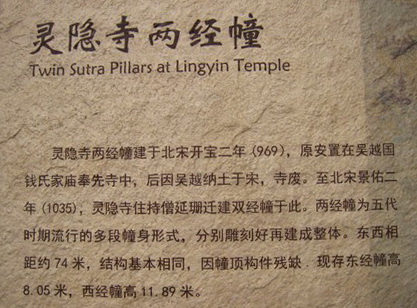 灵隐寺两经幢
Twin Sutra Pillars at Lingyin Temple
灵隐寺两经幢建于北宋开宝二年(969)，原安置在吴越国
钱氏家庙奉先寺中，后因吴越纳土于宋，寺废。至北宋景佑二
年(1035)，灵隐寺住持僧延珊迁建双经幢于此。两经幢为五代
时期流行的多段幢身形式，分别雕刻好再建成整体。东西相
距约74米，结构基本相同，因幢顶构件残缺．现存东经幢高
8.05米，西经幢高11.89米。